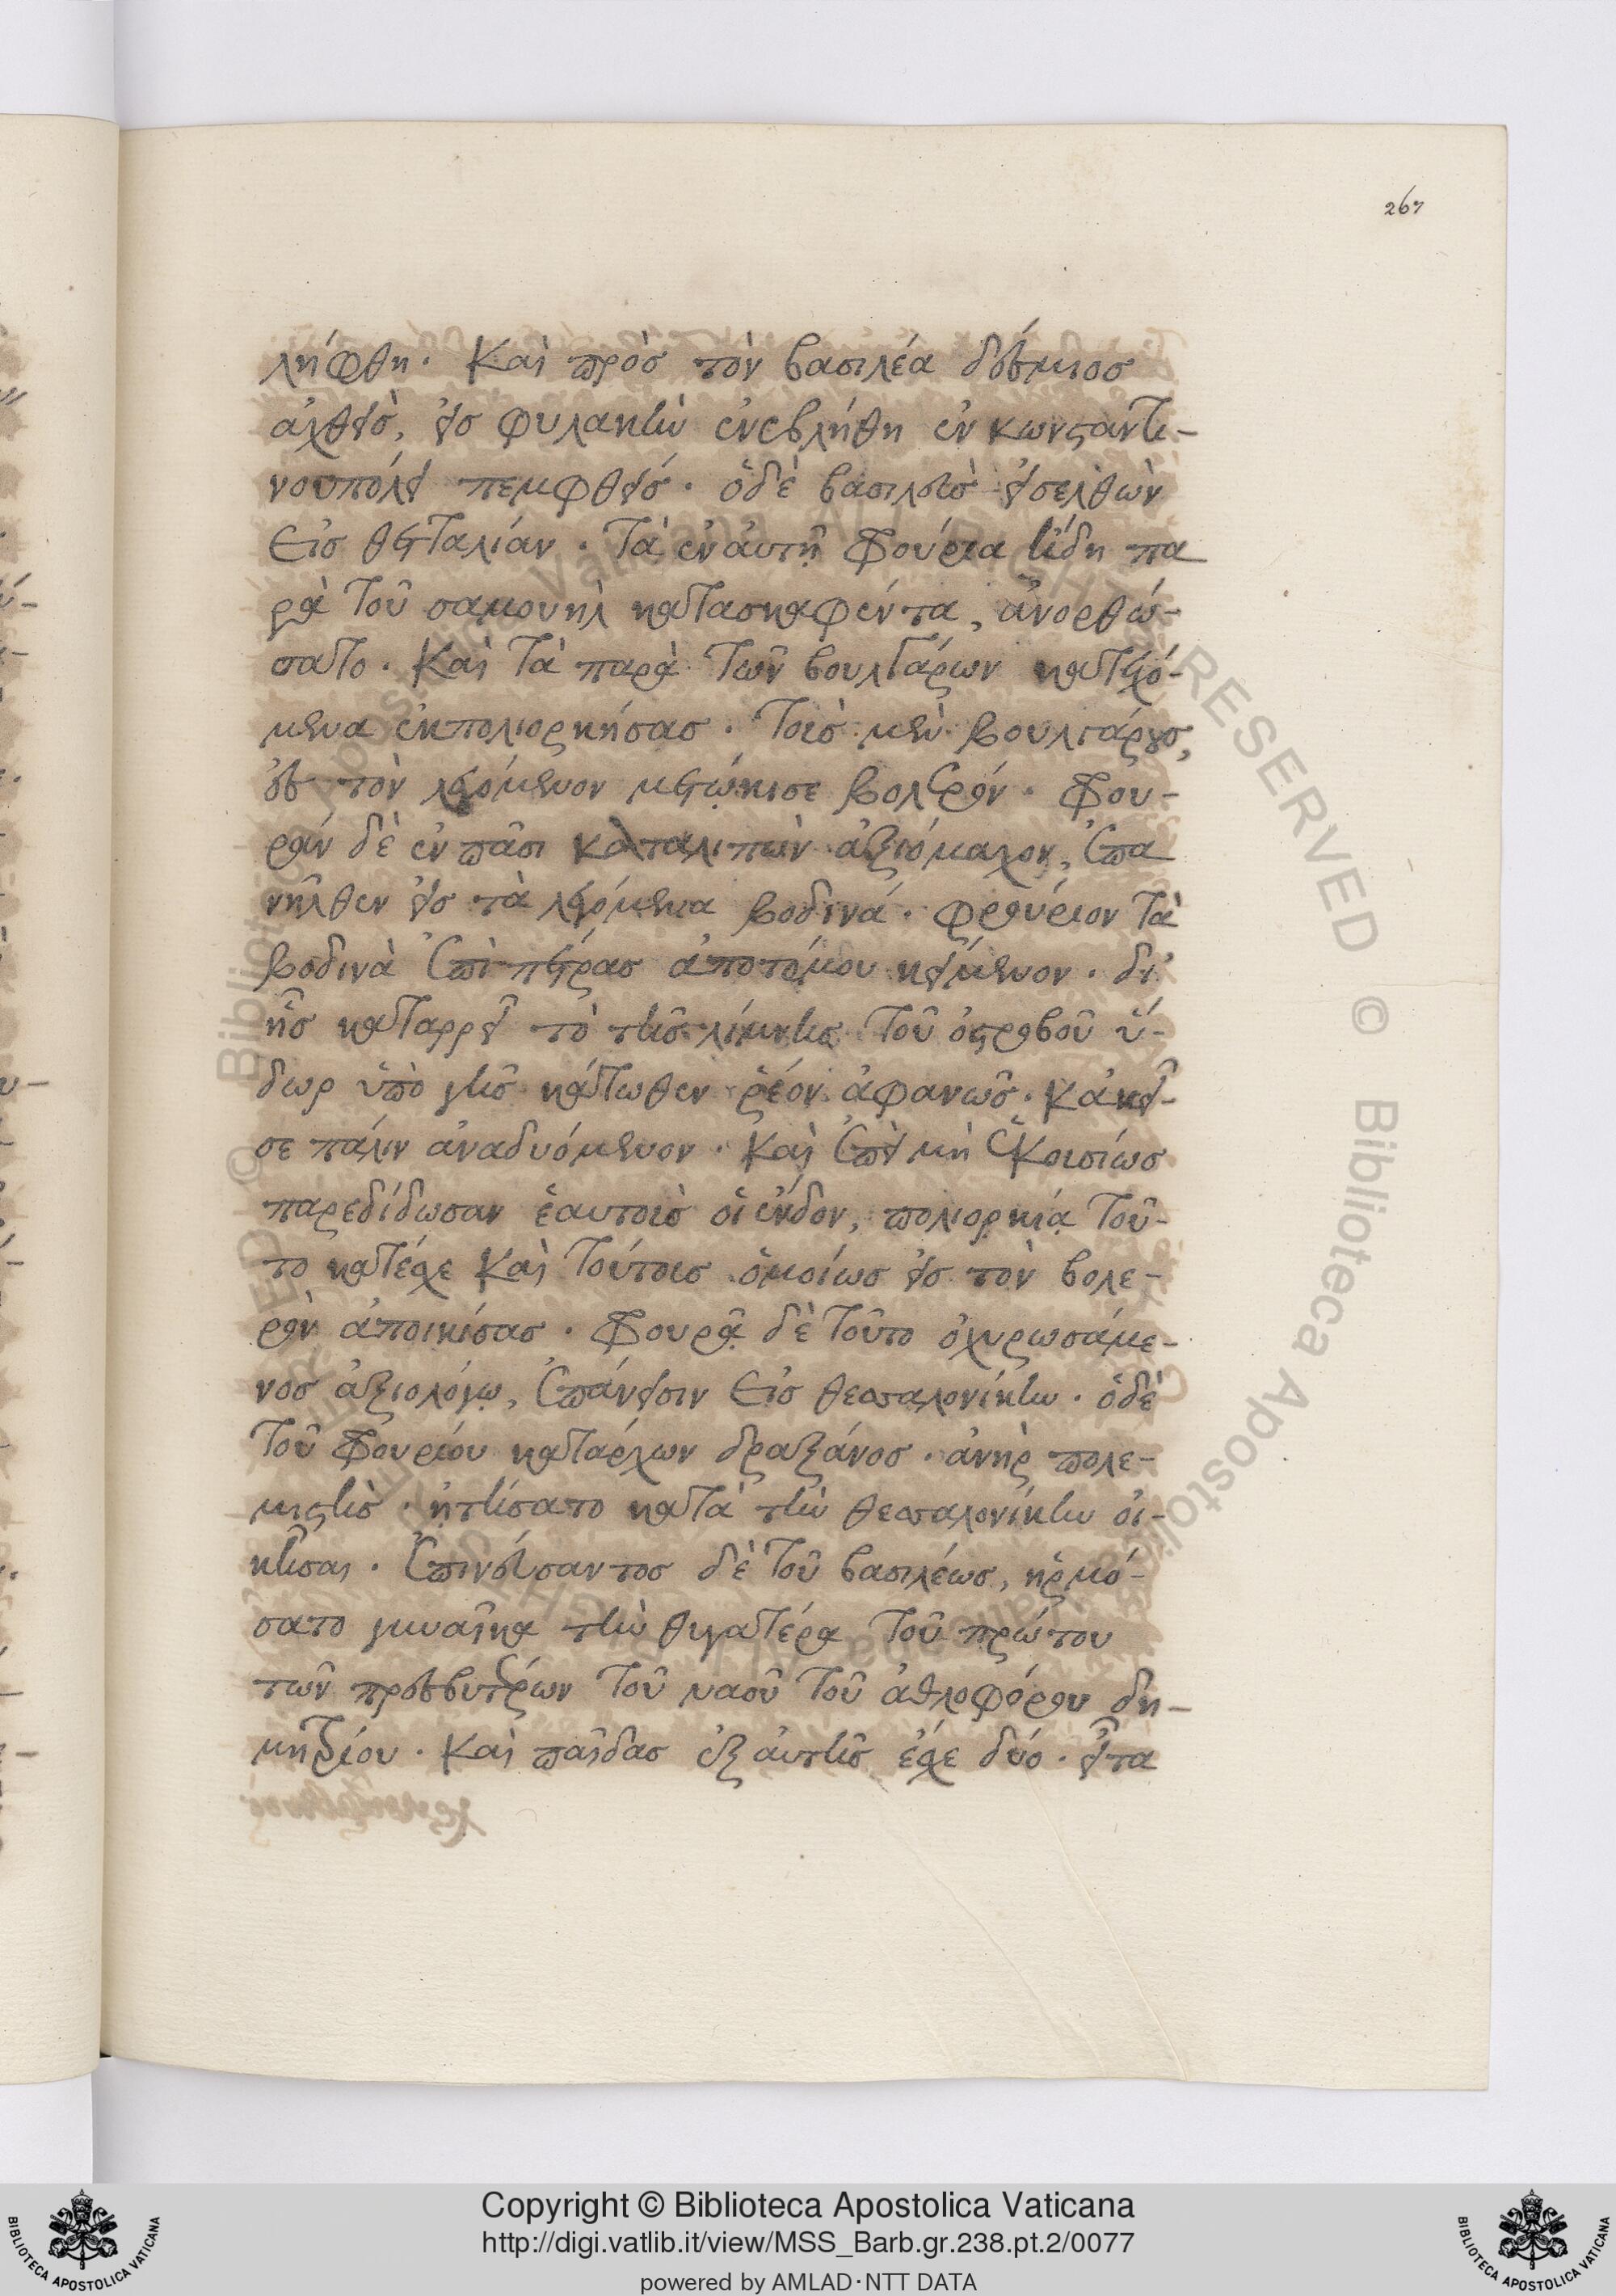 267
λήφθη. Καὶ πρὸσ τὸν βασιλέα δέσμιοσ
ἀχθεὶσ, εἰσ φυλακὴν ἐνεβλήθη ἐν κωνσταντι-
νουπόλει πεμφθείσ. ὁδὲ βασιλεὺσ εἰσελθὼν
Εἰσ θετταλίαν. Τὰ ἐν ἀυτῆ φρούρια ἤδη πα
ρὰ Τοῦ σαμουὴλ κατασκαφέντα, ἀνορθώ-
σατο. Καὶ Τὰ παρὰ Τῶν βουλγάρων κατεχό-
μενα ἐκπολιορκήσασ. Τοισ μὲν βουλγάρουσ,
εἰσ τὸν λεγόμενον μετώκισε βολερόν. Φρου-
ρὰν δὲ ἐν πᾶσι καταλιπὼν ἀξιόμαχον, ἐπα
νῆλθεν εἰσ τὰ λεγόμενα βοδινά. φρούριον Τὰ
βοδινὰ ἐπὶ πέτρασ ἀποτόμου κείμενον. δι'
ἧσ καταρρεῖ τὸ τῆσ λίμνησ Τοῦ ὀστροβοῦ ὕ-
δωρ ὑπὸ γῆσ κάτωθεν ῥέον ἀφανῶσ. Κἀκεῖ-
σε πάλιν ἀναδυόμενον. Καὶ ἐπεὶ μὴ ἑκουσίωσ
παρεδίδωσαν ἑαυτοὺσ οἱ ἔνδον, πολιορκία Τοῦ-
το κατέσχε Καὶ Τούτουσ ὁμοίωσ εἰσ τὸν βολε-
ρὸν ἀποικίσασ. Φρουρᾶ δὲ Τοῦτο ὀχυρωσάμε-
νοσ ἀξιολόγω, ἐπάνεισιν Εἰσ θεσσαλονίκην. ὁδὲ
Τοῦ Φρουρίου κατάρχων δραξάνοσ. ἀνὴρ πολε-
μιστὴσ. ἠτήσατο κατὰ τὴν θεσσαλονίκην οἰ-
κῆσαι. Ἐπινεύσαντοσ δὲ Τοῦ βασιλέωσ, ἡρμό-
σατο γυναῖκα τὴν θυγατέρα Τοῦ πρώτου
τῶν πρεσβυτέρων Τοῦ ναοῦ Τοῦ ἀθλοφόρου δη-
μητρίου. Καὶ παῖδασ ἐξ ἀυτῆσ ἔσχε δύο. εἶτα
Copyright © Biblioteca Apostolica Vaticana
http://digi.vatlib.it/view/MSS_Barb.gr.238.pt.2/0077
powered by AMLAD·NTT DATA